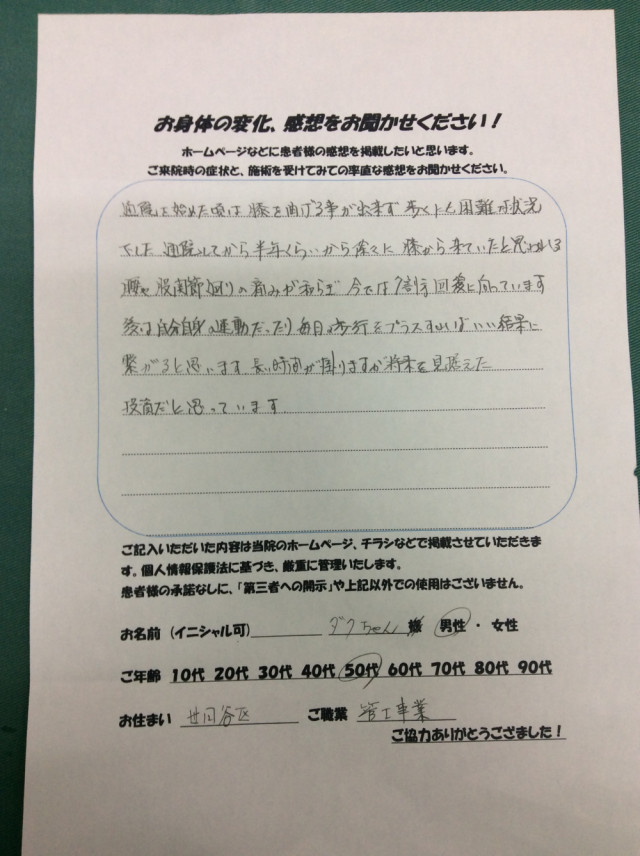 お身体の変化、感想をお聞かせください！
ホームページなどに患者様の感想を掲載したいと思います。
ご来院時の症状と、施術を受けてみての率直な感想をお聞かせください。
通院を始めた頃は 膝を曲げる事が出来ず 歩くにも困難な状況
でした 通院してから半年くらいから徐々に 膝から来ていたと思われる
腰や股関節廻りの痛みが和らぎ 今では 回復に向っています
後は自分自身の運動だったり毎日の歩行をプラスすればいい結果に
繋がると思います 長い時間が掛りますが将来を見据えた
投資だと思っています
ご記入いただいた内容は当院のホームページ、チラシなどで掲載させていただきま
す。個人情報保護法に基づき、厳重に管理いたします。
患者様の承諾なしに、「第三者への開示」や上記以外での使用はございません。
お名前（イニシャル可） ダクちゃん 様 男性・女性
ご年齢 10代 20代 30代 40代 50代 60代 70代 80代 90代
お住まい 世田谷区 ご職業 管工事業
ご協力ありがとうござました！